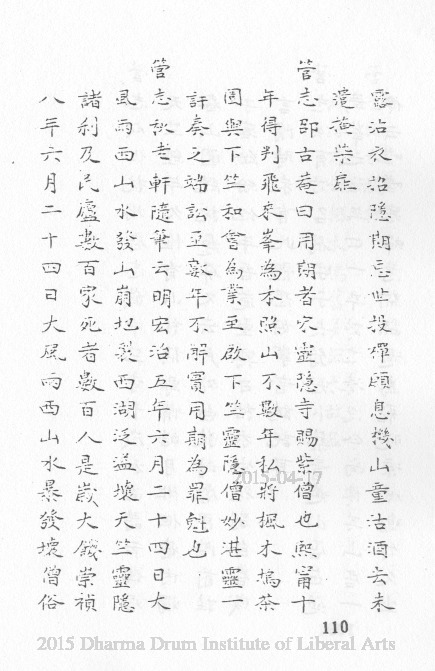 露沾衣招隱期忘世投禪願息機山童沽酒去未
遣掩柴扉
管志邵古菴曰用朗者宋靈隱寺賜紫僧也熙甯十
年得判飛來峯為本照山不數年私將楓木塢茶
園與下竺和嘗為業至啟下竺靈隱僧妙湛靈一
訐奏之端訟至數年不解實用朗為罪魁也
管志秋老軒隨筆云明宏治五年六月二十四日大
風雨西山水發山崩地裂西湖泛溢壞天竺靈隱
諸剎及民廬數百家死者數百人是歲大饑崇禎
八年六月二十四日大風雨西山水暴發壞僧俗
2015-04-17
110
2015 Dharma Drum Institute of Liberal Arts